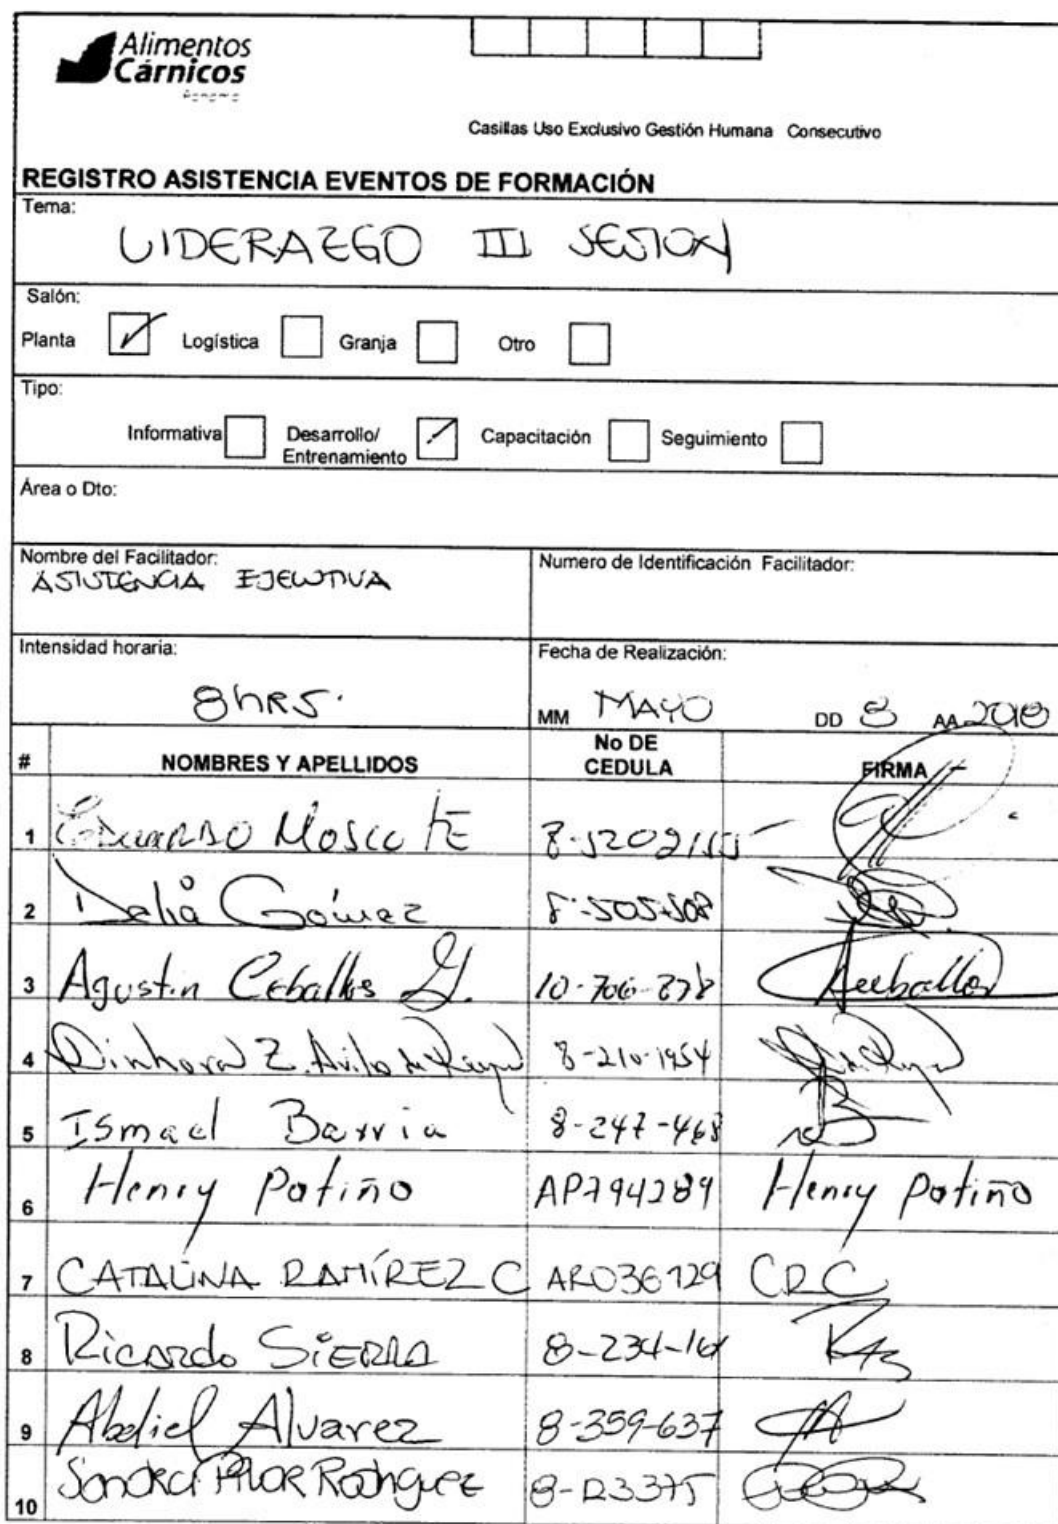 Alimentos
Cárnicos
Casillas Uso Exclusivo Gestión Humana Consecutivo
REGISTRO ASISTENCIA EVENTOS DE FORMACIÓN
Tema:
LIDERAZGO III SESION
Salón:
Planta Logística Granja Otro
Tipo:
Informativa Desarrollo/ Capacitación Seguimiento
Entrenamiento
Área o Dto:
Nombre del Facilitador: Numero de Identificación Facilitador:
ASISTENCIA EJECUTIVA
Intensidad horaria: Fecha de Realización:
8hRS. MM MAYO DD 8 AA 2018
# NOMBRES Y APELLIDOS No DE CEDULA FIRMA
1 Eduardo Moscote
2 Delia Gómez
3 Agustin Ceballos G. Aceballos
4 Dinhora Z. Avila de 8-210-1954
5 Ismael Barria 8-247-468
6 Henry Patiño AP794289 Henry Patiño
7 CATALINA RAMÍREZ C AR036729 CRC
8 Ricardo SiERRA
9 Abdiel Alvarez 8-359-637
10 Sandra PILAR Rodriguez